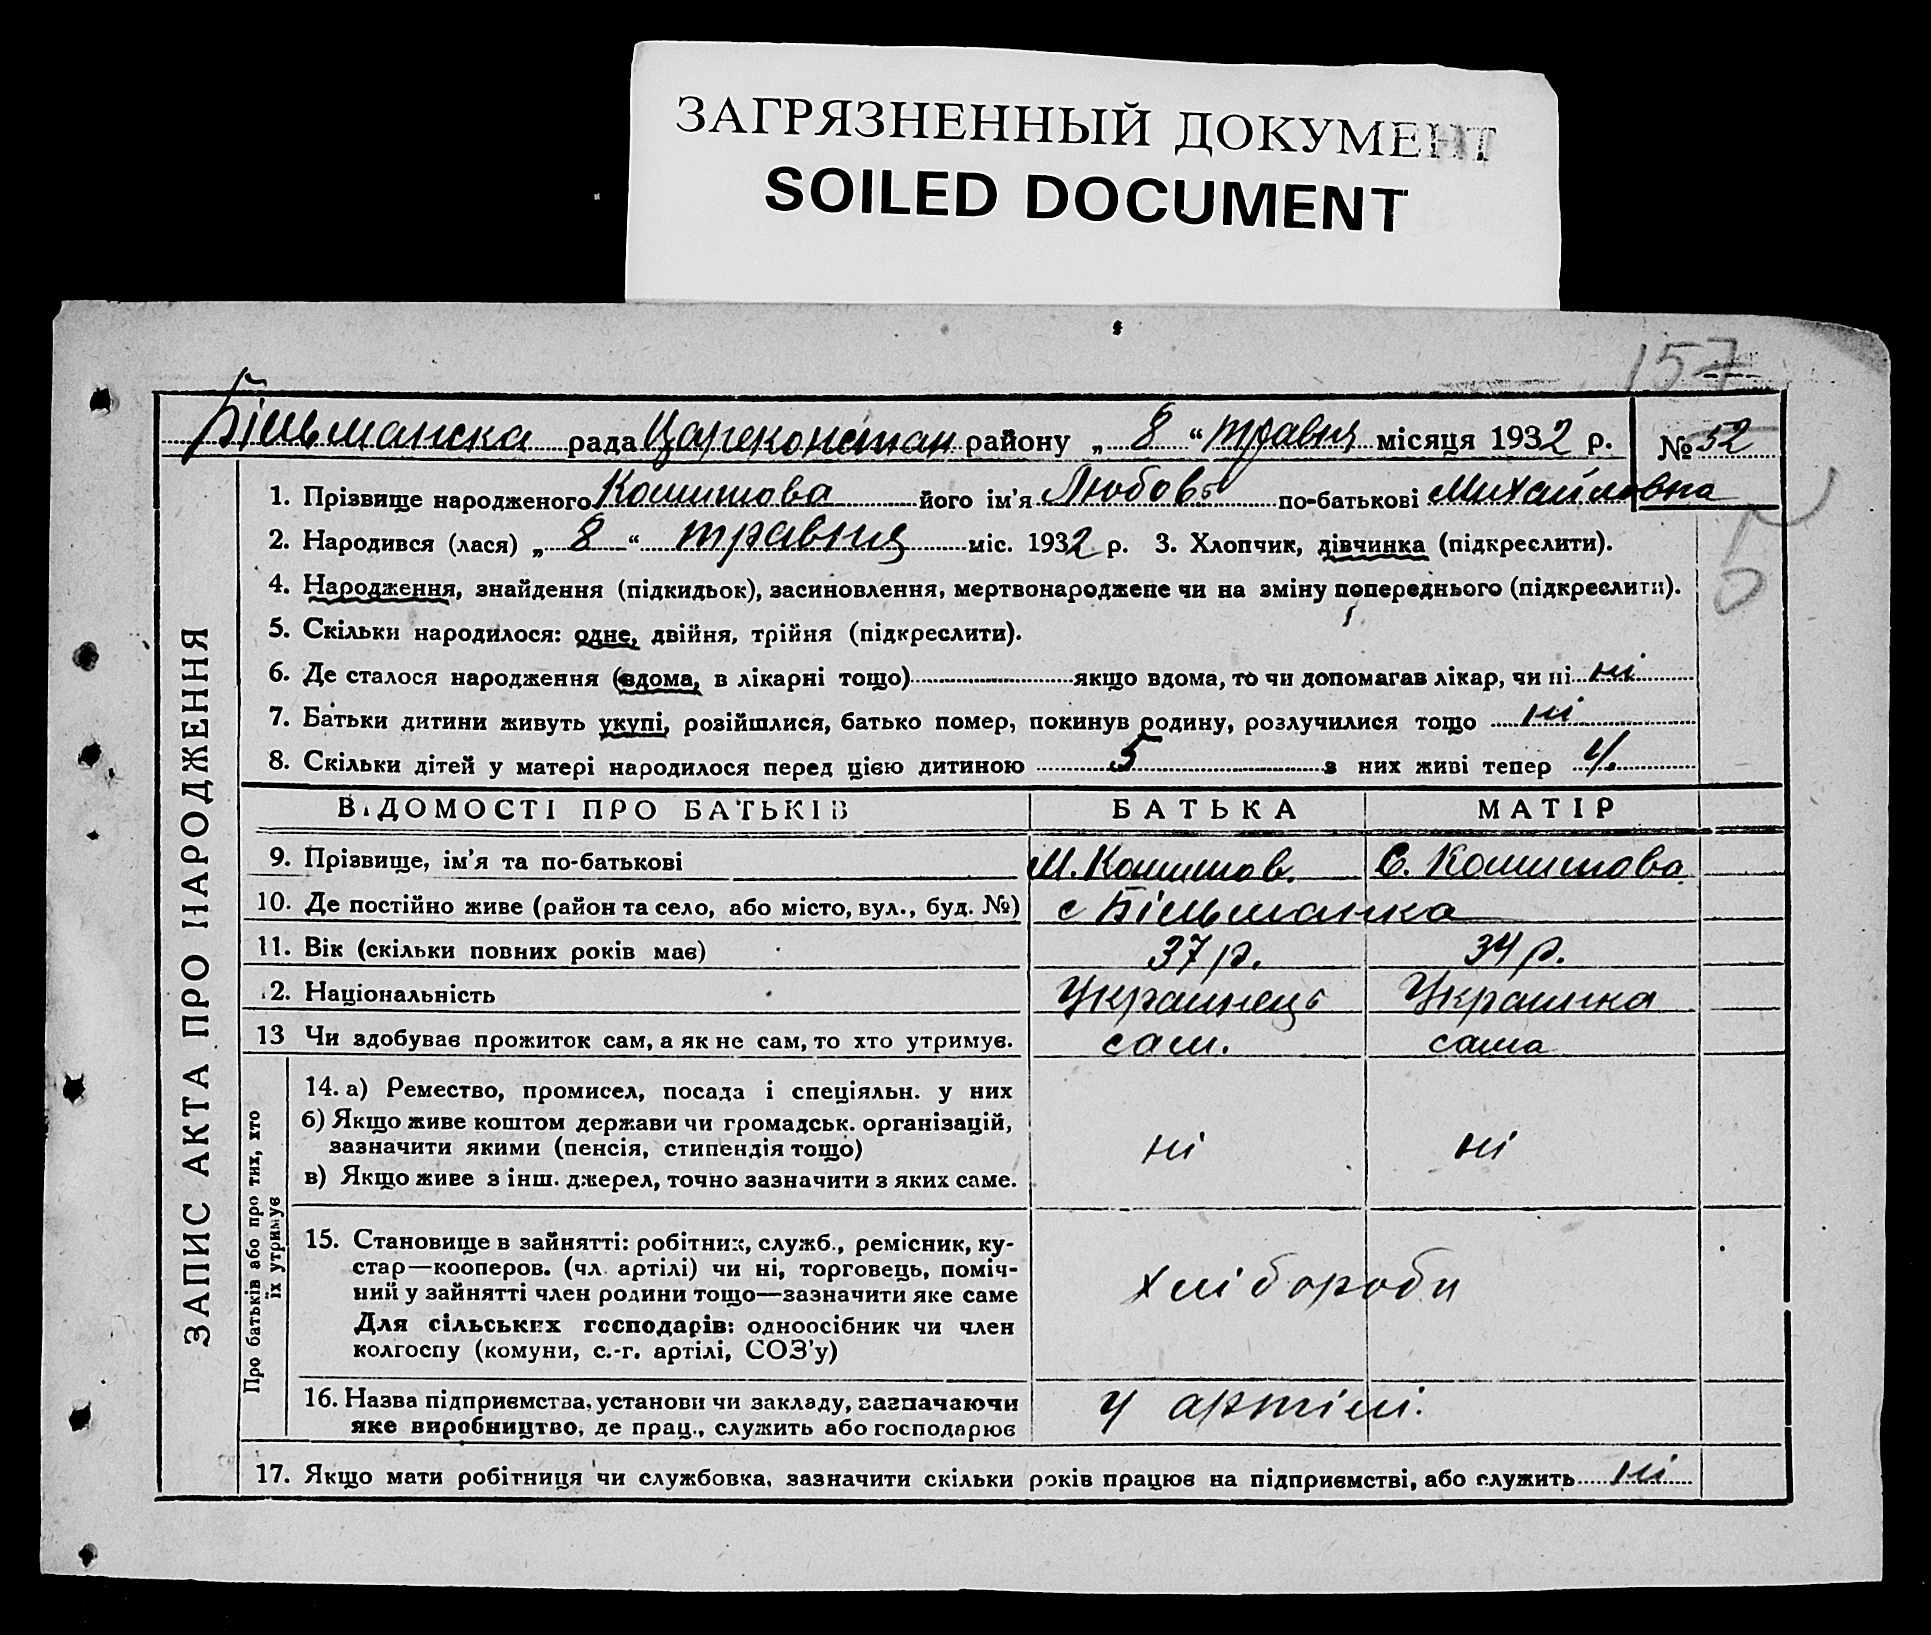 ЗАГРЯЗНЕННЫЙ ДОКУМЕНТ
SOILED DOCUMENT
157
Більманска рада Цареконстан району „ 8 “ травня місяця 1932 р. № 52
1. Прізвище народженого його ім’я Любовь по-батькові Михайловна
2. Народився (лася) „ 8 “ травня міс. 1932 р. 3. Хлопчик, дівчинка (підкреслити).
4. Народження, знайдення (підкидьок), засиновлення, мертвонароджене чи на зміну попереднього (підкреслити).
5. Скільки народилося: одне, двійня, трійня (підкреслити).
6. Де сталося народження (вдома, в лікарні тощо) якщо вдома, то чи допомагав лікар, чи ні ні
7. Батьки дитини живуть укупі, розійшлися, батько помер, покинув родину, розлучилися тощо ні
8. Скільки дітей у матері народилося перед цією дитиною 5 з них живі тепер 4.
ВІДОМОСТІ ПРО БАТЬКІВ БАТЬКА МАТІР
9. Прізвище, ім’я та по-батькові М. С.
10. Де постійно живе (район та село, або місто, вул., буд. №) с Більманка
11. Вік (скільки повних років має) 37 р. 34 р.
12. Національність Украінець Украінка
13 Чи здобував прожиток сам, а як не сам, то хто утримує. сам. сама
14. а) Ремество, промисел, посада і спеціяльн. у них
б) Якщо живе коштом держави чи громадськ. організацій,
зазначити якими (пенсія, стипендія тощо) ні ні
в) Якщо живе з інш. джерел, точно зазначити з яких саме.
15. Становище в зайнятті: робітник, служб., ремісник, ку-
стар—кооперов. (чл. артілі) чи ні, торговець, поміч-
ний у зайнятті член родини тощо—зазначити яке саме хлібороби
Для сільських господарів: одноосібник чи член
колгоспу (комуни, с.-г. артілі, СОЗ’у)
16. Назва підприємства, установи чи закладу, зазначаючи у артілі.
яке виробництво, де прац., служить або господарює
17. Якщо мати робітниця чи службовка, зазначити скільки років працює на підприємстві, або служить ні
ЗАПИС АКТА ПРО НАРОДЖЕННЯ
Про батьків або про тих, хто
їх утримує